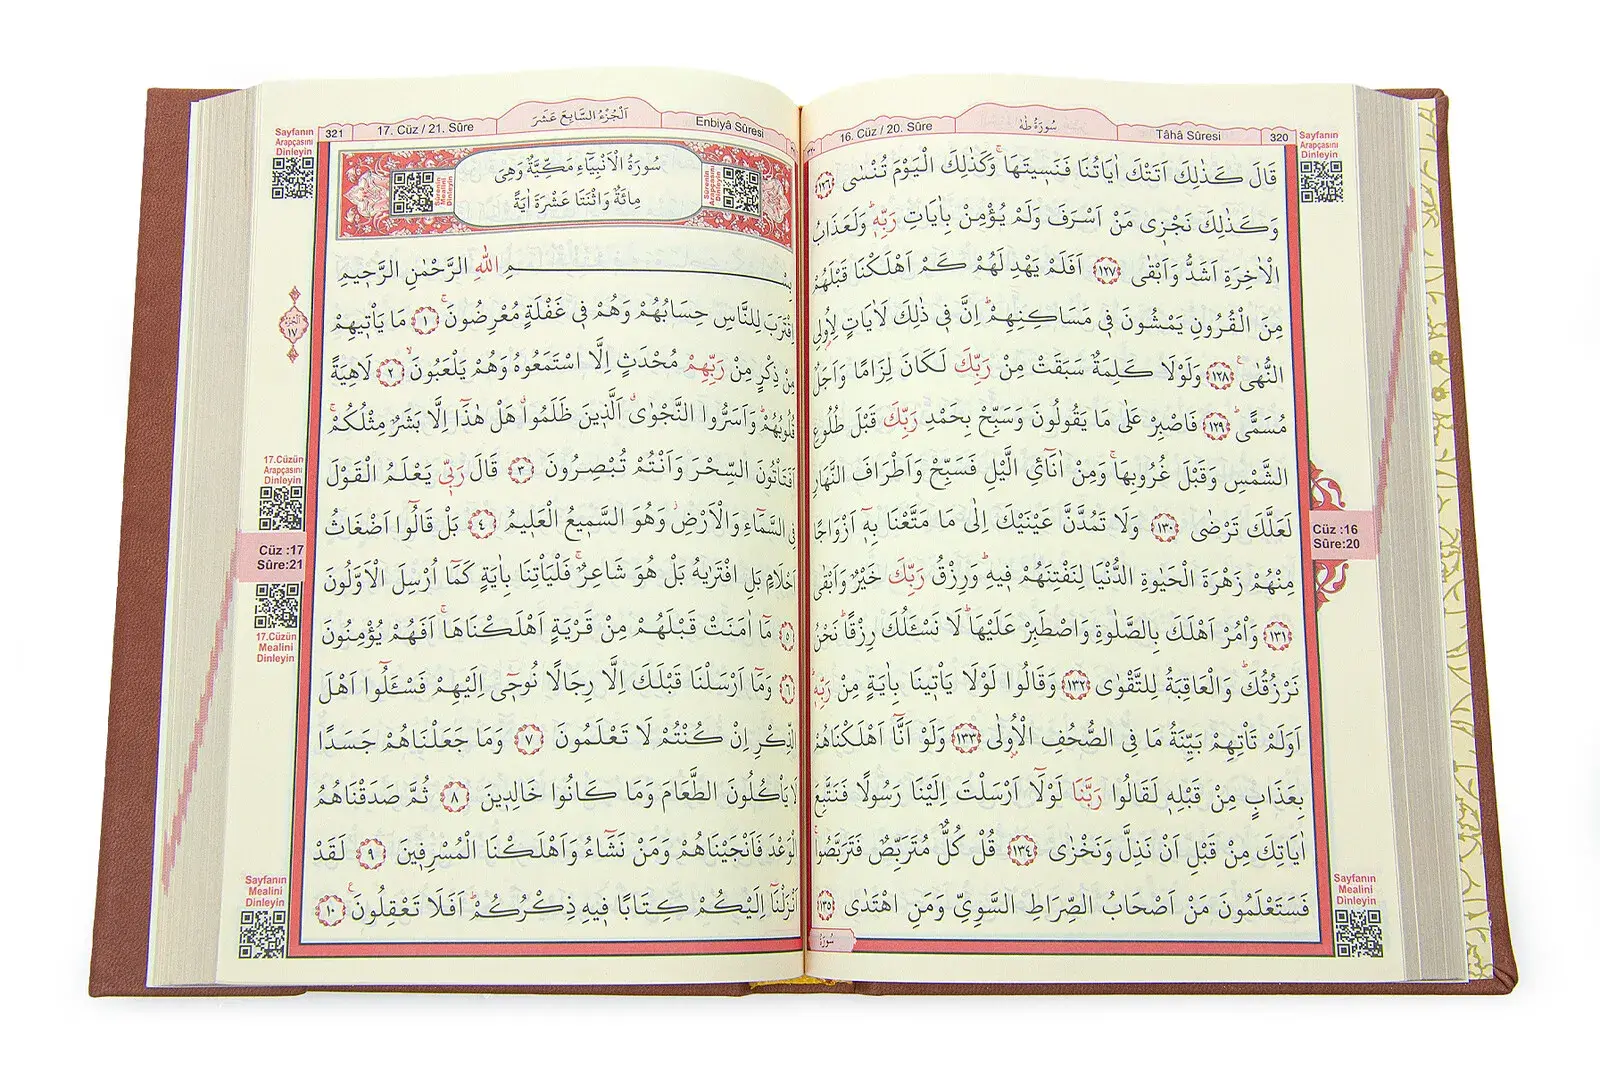 16. Cüz / 20. Sûre
سُورَةُ طٰهٰ
Tâhâ Sûresi
320
Sayfanın
Arapçasını
Dinleyin
قَالَ كَذٰلِكَ اَتَتْكَ اٰيَاتُنَا فَنَسٖيتَهَاۚ وَكَذٰلِكَ الْيَوْمَ تُنْسٰى ﴿١٢٦﴾
وَكَذٰلِكَ نَجْزٖى مَنْ اَسْرَفَ وَلَمْ يُؤْمِنْ بِاٰيَاتِ رَبِّهٖؕ وَلَعَذَابُ
الْاٰخِرَةِ اَشَدُّ وَاَبْقٰى ﴿١٢٧﴾ اَفَلَمْ يَهْدِ لَهُمْ كَمْ اَهْلَكْنَا قَبْلَهُمْ
مِنَ الْقُرُونِ يَمْشُونَ فٖى مَسَاكِنِهِمْؕ اِنَّ فٖى ذٰلِكَ لَاٰيَاتٍ لِاُولِى
النُّهٰىۚ ﴿١٢٨﴾ وَلَوْلَا كَلِمَةٌ سَبَقَتْ مِنْ رَبِّكَ لَكَانَ لِزَامًا وَاَجَلٌ
مُسَمًّىؕ ﴿١٢٩﴾ فَاصْبِرْ عَلٰى مَا يَقُولُونَ وَسَبِّحْ بِحَمْدِ رَبِّكَ قَبْلَ طُلُوعِ
الشَّمْسِ وَقَبْلَ غُرُوبِهَاۚ وَمِنْ اٰنَٓائِ الَّيْلِ فَسَبِّحْ وَاَطْرَافَ النَّهَارِ
لَعَلَّكَ تَرْضٰى ﴿١٣٠﴾ وَلَا تَمُدَّنَّ عَيْنَيْكَ اِلٰى مَا مَتَّعْنَا بِهٖٓ اَزْوَاجًا
مِنْهُمْ زَهْرَةَ الْحَيٰوةِ الدُّنْيَا لِنَفْتِنَهُمْ فٖيهِؕ وَرِزْقُ رَبِّكَ خَيْرٌ وَاَبْقٰى
﴿١٣١﴾ وَأْمُرْ اَهْلَكَ بِالصَّلٰوةِ وَاصْطَبِرْ عَلَيْهَاؕ لَا نَسْـَٔلُكَ رِزْقًاؕ نَحْنُ
نَرْزُقُكَؕ وَالْعَاقِبَةُ لِلتَّقْوٰى ﴿١٣٢﴾ وَقَالُوا لَوْلَا يَأْتٖينَا بِاٰيَةٍ مِنْ رَبِّهٖؕ
اَوَلَمْ تَأْتِهِمْ بَيِّنَةُ مَا فِى الصُّحُفِ الْاُولٰى ﴿١٣٣﴾ وَلَوْ اَنَّٓا اَهْلَكْنَاهُمْ
بِعَذَابٍ مِنْ قَبْلِهٖ لَقَالُوا رَبَّنَا لَوْلَٓا اَرْسَلْتَ اِلَيْنَا رَسُولًا فَنَتَّبِعَ
اٰيَاتِكَ مِنْ قَبْلِ اَنْ نَذِلَّ وَنَخْزٰى ﴿١٣٤﴾ قُلْ كُلٌّ مُتَرَبِّصٌ فَتَرَبَّصُواۚ
فَسَتَعْلَمُونَ مَنْ اَصْحَابُ الصِّرَاطِ السَّوِىِّ وَمَنِ اهْتَدٰى ﴿١٣٥﴾
سُورَةُ
Cüz :16
Sûre:20
Sayfanın
Mealini
Dinleyin
321
17. Cüz / 21. Sûre
اَلْجُزْءُ السَّابِعَ عَشَرَ
Enbiyâ Sûresi
Sayfanın
Arapçasını
Dinleyin
سُورَةُ الْاَنْبِيَٓاءِ مَكِّيَّةٌ وَهِىَ
مِائَةٌ وَاثْنَتَا عَشْرَةَ اٰيَةً
Sûrenin
Arapçasını
Dinleyin
Sûrenin
Mealini
Dinleyin
بِسْمِ اللّٰهِ الرَّحْمٰنِ الرَّحٖيمِ
اِقْتَرَبَ لِلنَّاسِ حِسَابُهُمْ وَهُمْ فٖى غَفْلَةٍ مُعْرِضُونَۚ ﴿١﴾ مَا يَأْتٖيهِمْ
مِنْ ذِكْرٍ مِنْ رَبِّهِمْ مُحْدَثٍ اِلَّا اسْتَمَعُوهُ وَهُمْ يَلْعَبُونَۙ ﴿٢﴾ لَاهِيَةً
قُلُوبُهُمْؕ وَاَسَرُّوا النَّجْوٰىۗ اَلَّذٖينَ ظَلَمُواۗ هَلْ هٰذَٓا اِلَّا بَشَرٌ مِثْلُكُمْۚ
اَفَتَأْتُونَ السِّحْرَ وَاَنْتُمْ تُبْصِرُونَ ﴿٣﴾ قَالَ رَبّٖى يَعْلَمُ الْقَوْلَ
فِى السَّمَٓاءِ وَالْاَرْضِؗ وَهُوَ السَّمٖيعُ الْعَلٖيمُ ﴿٤﴾ بَلْ قَالُٓوا اَضْغَاثُ
اَحْلَامٍ بَلِ افْتَرٰيهُ بَلْ هُوَ شَاعِرٌۚ فَلْيَأْتِنَا بِاٰيَةٍ كَمَٓا اُرْسِلَ الْاَوَّلُونَ
﴿٥﴾ مَٓا اٰمَنَتْ قَبْلَهُمْ مِنْ قَرْيَةٍ اَهْلَكْنَاهَاۚ اَفَهُمْ يُؤْمِنُونَ
﴿٦﴾ وَمَٓا اَرْسَلْنَا قَبْلَكَ اِلَّا رِجَالًا نُوحٖٓى اِلَيْهِمْ فَسْـَٔلُٓوا اَهْلَ
الذِّكْرِ اِنْ كُنْتُمْ لَا تَعْلَمُونَ ﴿٧﴾ وَمَا جَعَلْنَاهُمْ جَسَدًا
لَا يَأْكُلُونَ الطَّعَامَ وَمَا كَانُوا خَالِدٖينَ ﴿٨﴾ ثُمَّ صَدَقْنَاهُمُ
الْوَعْدَ فَاَنْجَيْنَاهُمْ وَمَنْ نَشَٓاءُ وَاَهْلَكْنَا الْمُسْرِفٖينَ ﴿٩﴾ لَقَدْ
اَنْزَلْنَٓا اِلَيْكُمْ كِتَابًا فٖيهِ ذِكْرُكُمْؕ اَفَلَا تَعْقِلُونَۚ ﴿١٠﴾
اَلْجُزْءُ
١٧
17.Cüzün
Arapçasını
Dinleyin
Cüz :17
Sûre:21
17.Cüzün
Mealini
Dinleyin
Sayfanın
Mealini
Dinleyin